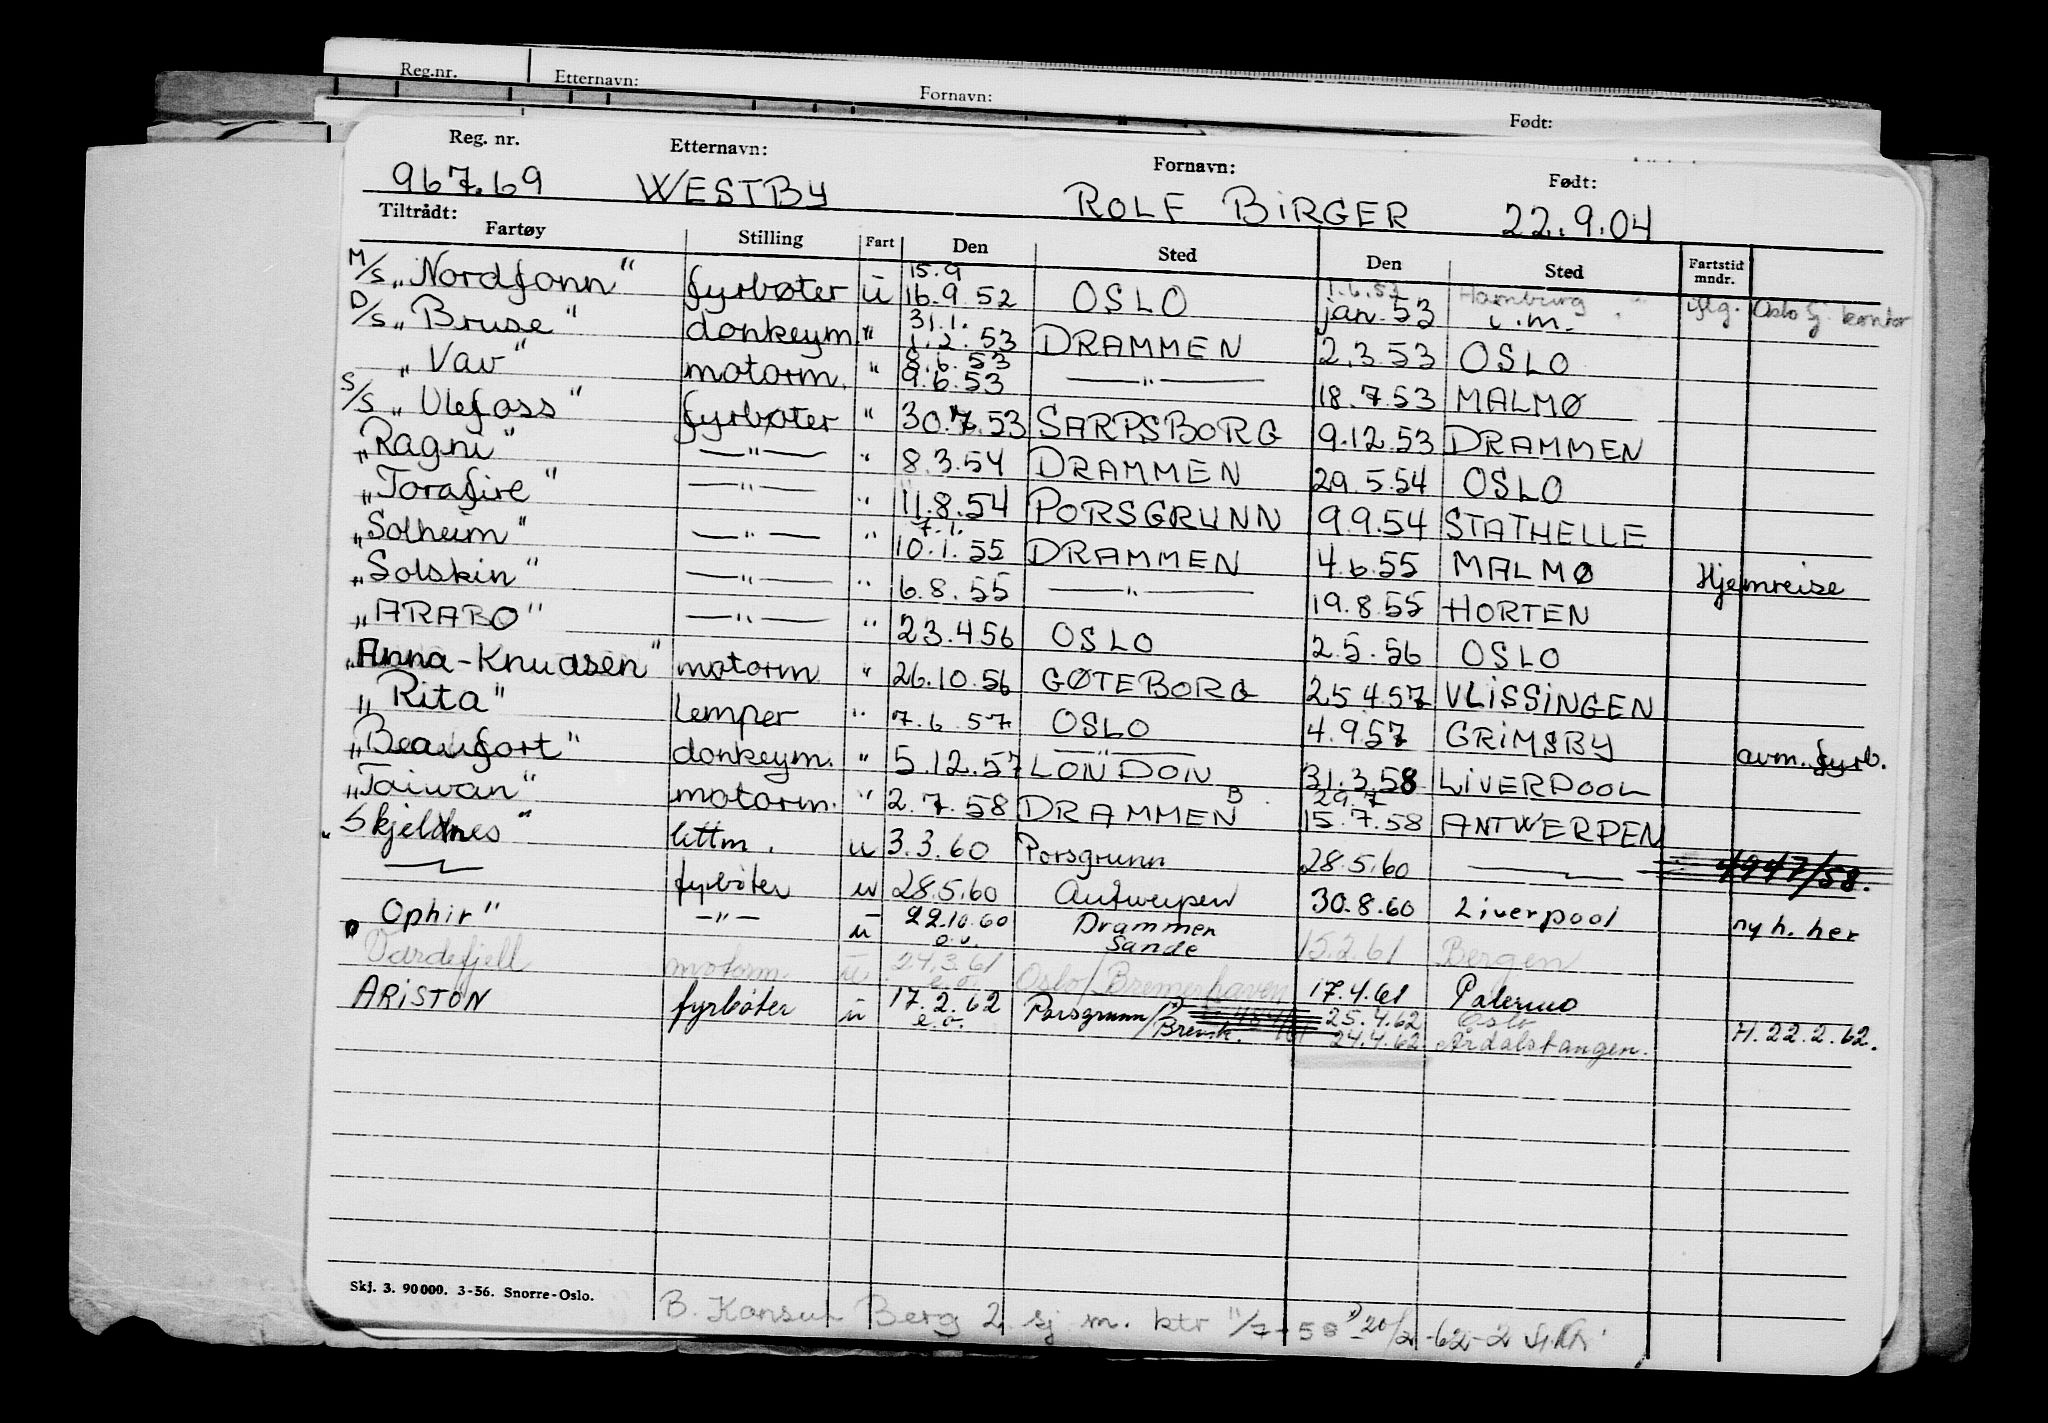 Reg.nr. Etternavn: Fornavn: Født:
Reg. nr. Etternavn: Fornavn: Født:
967.69 WESTBY ROLF BIRGER 22.9.04
Tiltrådt:
Fartøy Stilling Fart Den Sted Den Sted Fartstid mndr.
15.9 1.6.53 Hamburg
M/S „Nordfonn" fyrbøter u 16.9.52 OSLO jan.53 i.m. iflg. Oslo sj. kontor
31.1.
D/S „Bruse" donkeym. " 1.2.53 DRAMMEN 2.3.53 OSLO
8.6.53
„Vav" motorm. " 9.6.53 —"— 18.7.53 MALMØ
S/S „Ulefoss" fyrbøter " 30.7.53 SARPSBORG 9.12.53 DRAMMEN
„Ragni" —"— " 8.3.54 DRAMMEN 29.5.54 OSLO
„Torafire" —"— " 11.8.54 PORSGRUNN 9.9.54 STATHELLE
7.1.
„Solheim" —"— " 10.1.55 DRAMMEN 4.6.55 MALMØ Hjemreise
„Solskin" —"— " 6.8.55 —"— 19.8.55 HORTEN
„ARABO" —"— " 23.4.56 OSLO 2.5.56 OSLO
„Anna-Knudsen" motorm " 26.10.56 GØTEBORG 25.4.57 VLISSINGEN
„Rita" lemper " 7.6.57 OSLO 4.9.57 GRIMSBY avm. fyrb.
„Beaufort" donkeym. " 5.12.57 LONDON 31.3.58 LIVERPOOL
29.7
„Taiwan" motorm. " 2.7.58 DRAMMEN B 15.7.58 ANTWERPEN 4947/58.
„Skjeldnes" lettm. u 3.3.60 Porsgrunn 28.5.60 —
— fyrbøter u 28.5.60 Antwerpen 30.8.60 Liverpool ny h. her
„Ophir" —"— u 22.10.60 Drammen 15.2.61 Bergen
e.o. Sande
Vardefjell motorm. u 24.3.61 Oslo/Bremerhaven 17.4.61 Palermo
e.o.
ARISTON fyrbøter u 17.2.62 Porsgrunn/ 25.4.62 Oslo H. 22.2.62.
e.o. Brevik. 24.4.62 Årdalstangen.
Skj. 3. 90000. 3-56. Snorre-Oslo.
B. Konsul Berg 2 sj m. ktr 11/7-58 2) 20/2-62-2